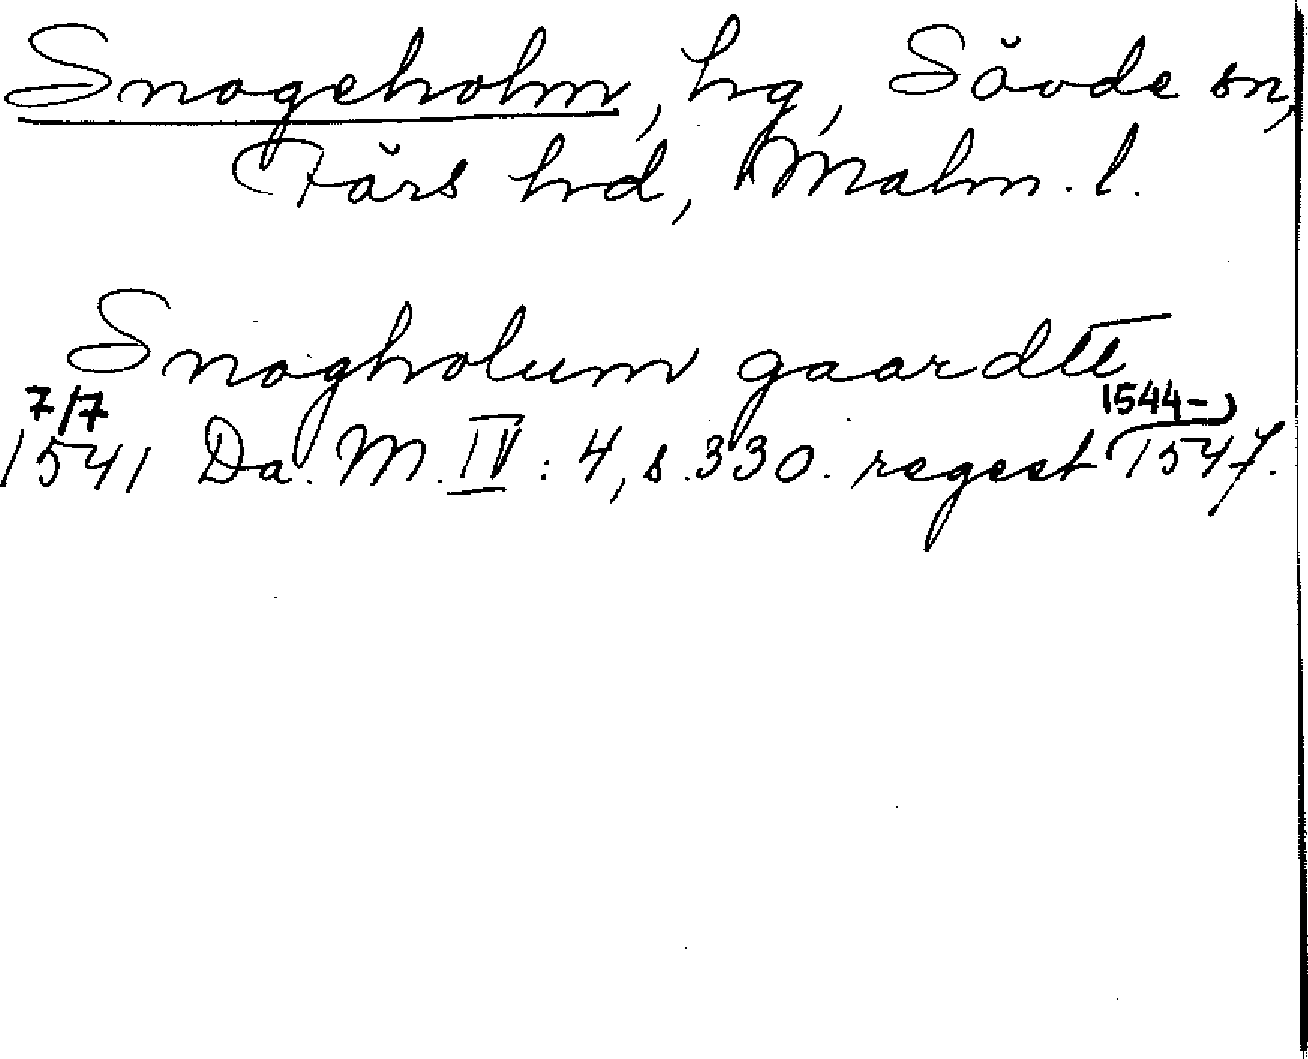 Snogeholm, hg, Sövde sn,
Färs hrd, Malm. l.
Snogholum gaardtt
7/7 1544-
1541 Da. M. IV : 4, s. 330. regest 1547.